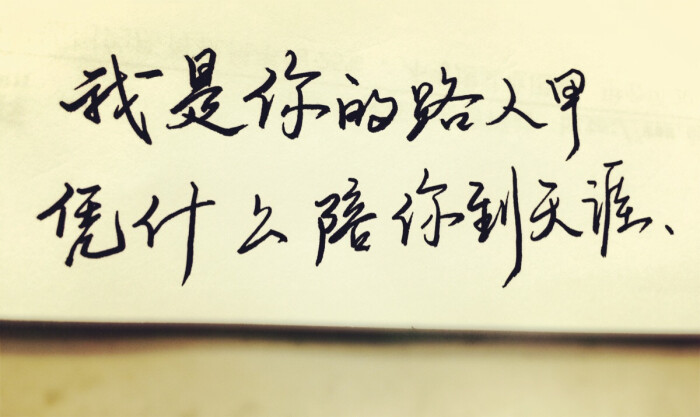 我是你的路人甲
凭什么陪你到天涯、